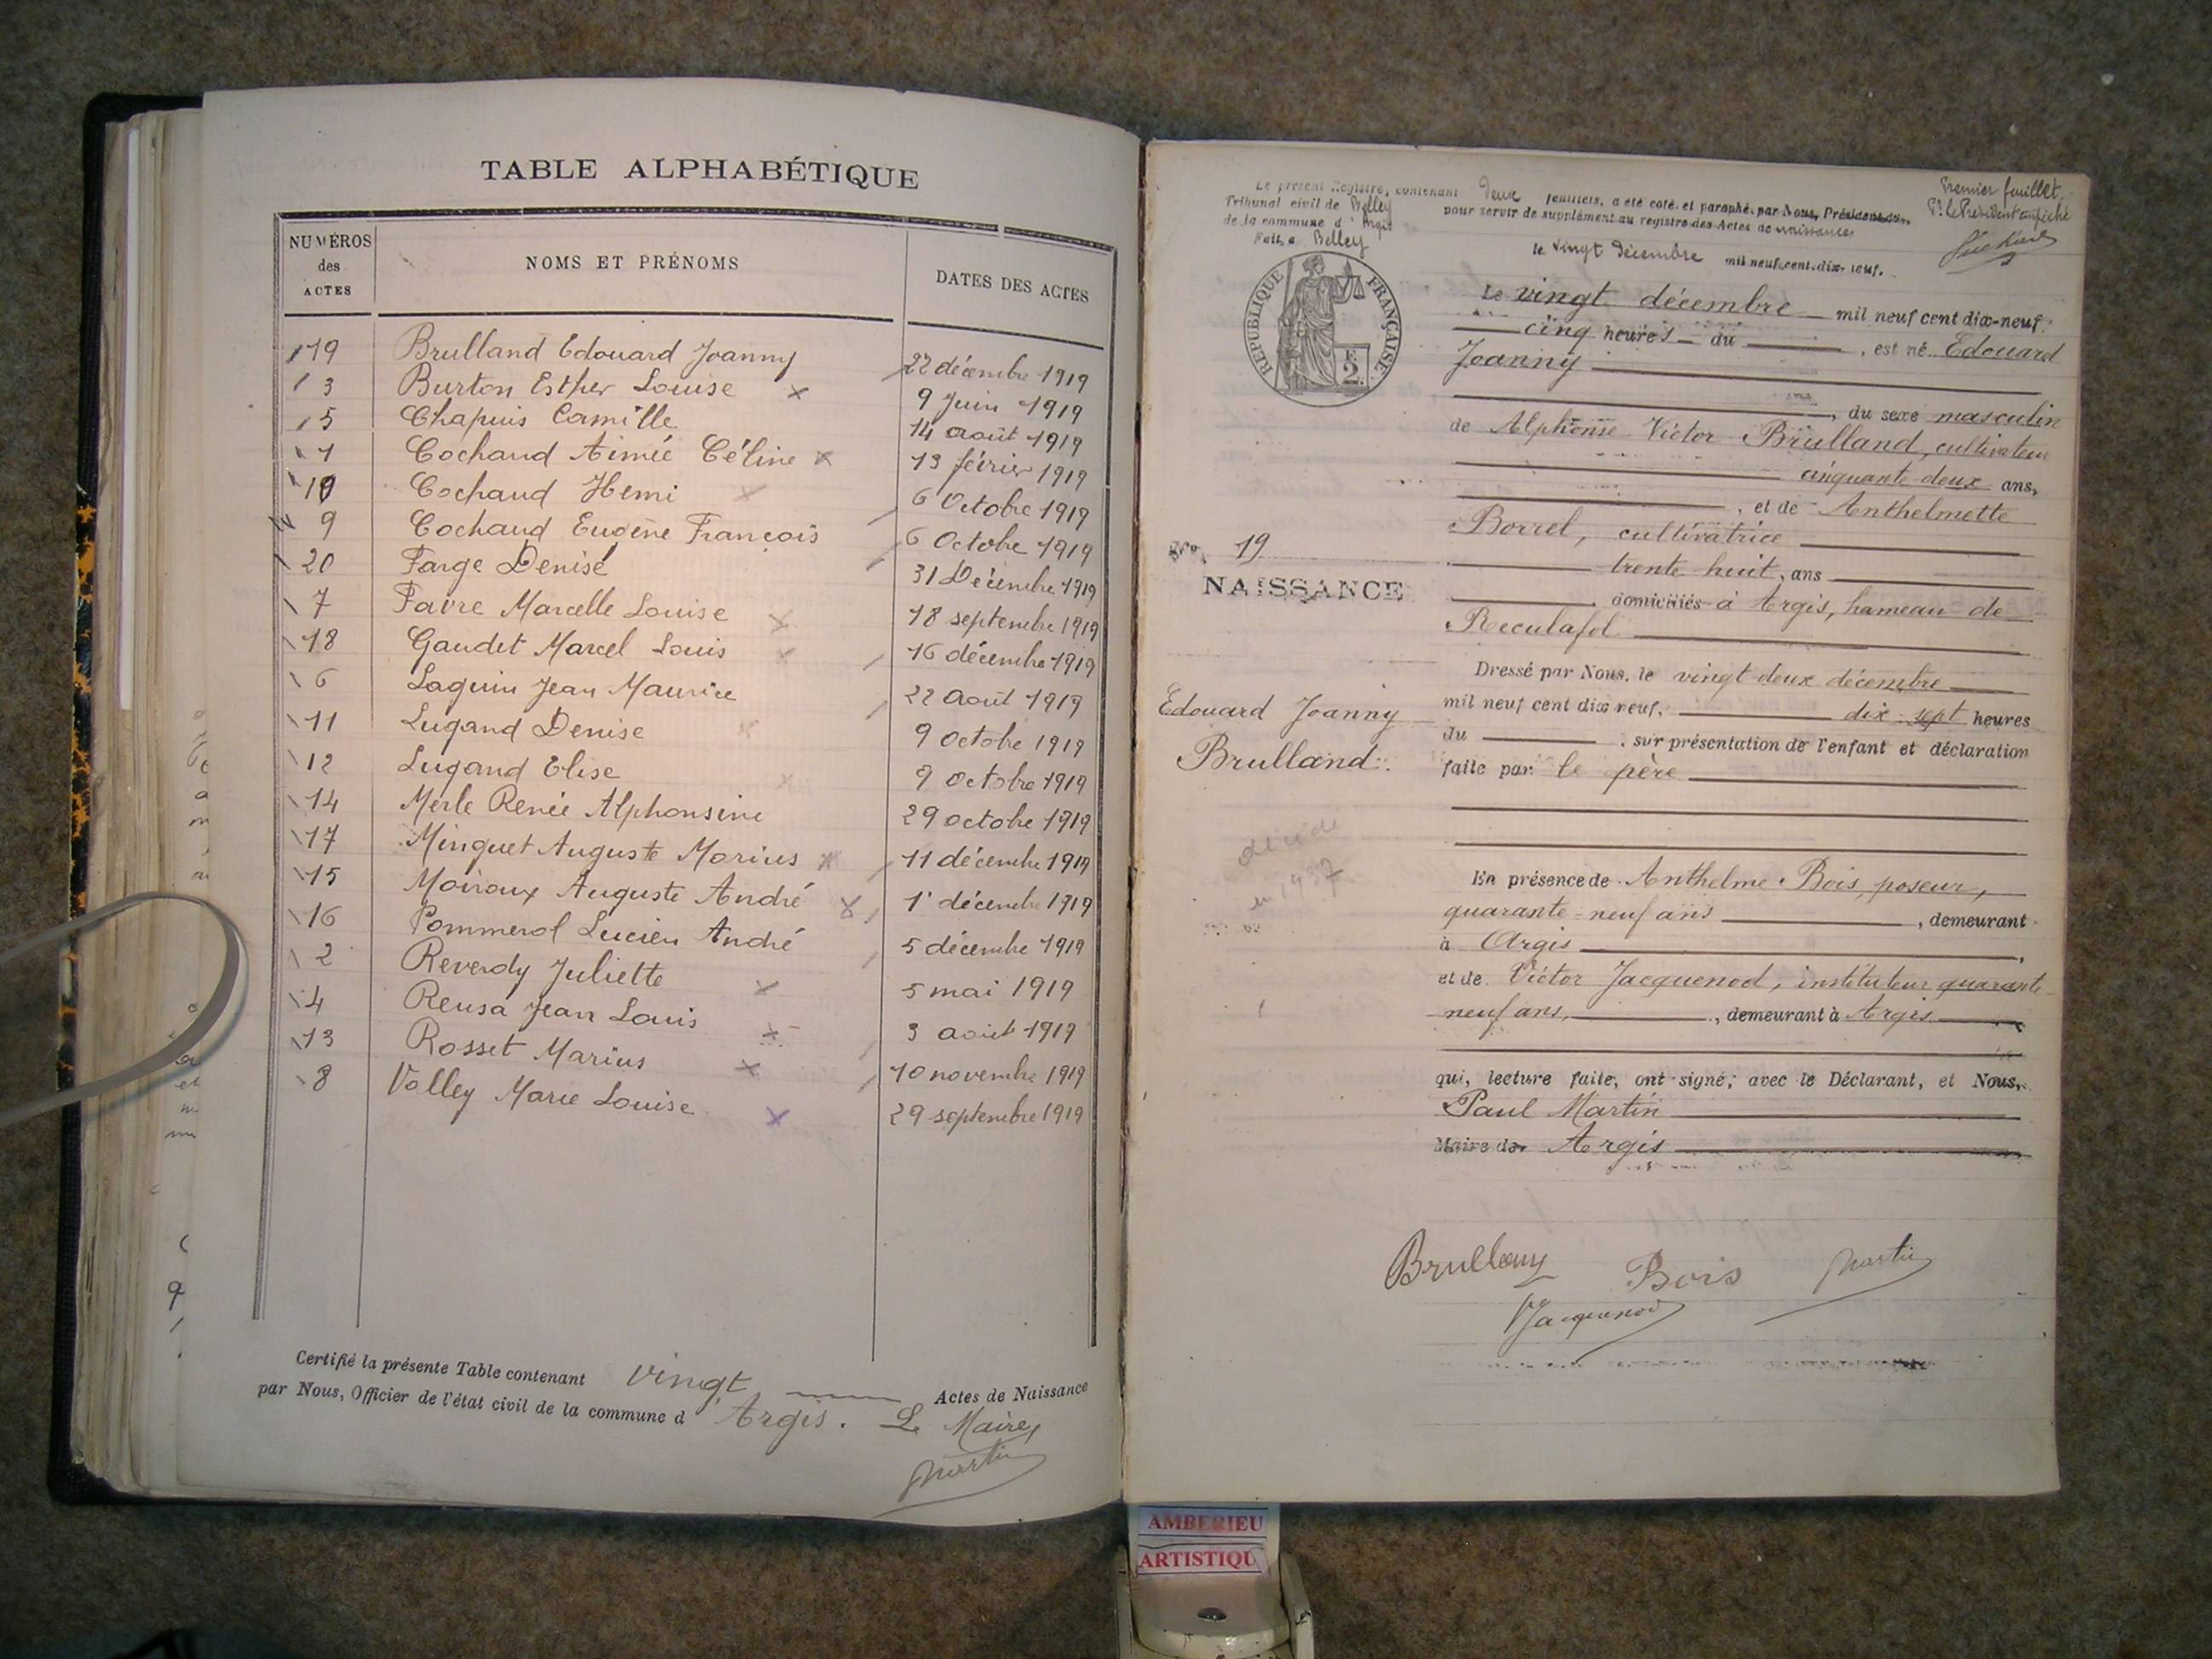 TABLE ALPHABÉTIQUE
NUMÉROS des ACTES
NOMS ET PRÉNOMS
DATES DES ACTES
19 Brulland Edouard Joanny 22 décembre 1919
3 Burton Esther Louise 9 Juin 1919
5 Chapuis Camille 14 août 1919
1 Cochand Aimée Céline 13 février 1919
10 Cochand Henri 6 Octobre 1919
9 Cochand Eugène François 6 Octobre 1919
20 Farge Denise 31 Décembre 1919
7 Favre Marcelle Louise 18 septembre 1919
18 Gaudet Marcel Louis 16 décembre 1919
6 Laguin Jean Maurice 22 Août 1919
11 Lugand Denise 9 octobre 1919
12 Lugand Elise 9 octobre 1919
14 Merle Renée Alphonsine 29 octobre 1919
17 Minguet Auguste Marius 11 décembre 1919
15 Moiroux Auguste André 1er décembre 1919
16 Pommerol Lucien André 5 décembre 1919
2 Reverdy Juliette 5 mai 1919
4 Reusa Jean Louis 3 août 1919
13 Rosset Marius 10 novembre 1919
8 Volley Marie Louise 29 septembre 1919
Certifié la présente Table contenant vingt Actes de Naissance
par Nous, Officier de l'état civil de la commune d'Argis. Le Maire,
Martin
Premier feuillet,
Pr. le Président empêché
Le présent Registre, contenant deux feuillets, a été coté et paraphé par Nous, Président du
Tribunal civil de Belley pour servir de supplément au registre des Actes de naissances
de la commune d'Argis
Fait, à Belley le vingt décembre mil neuf cent dix-neuf.
RÉPUBLIQUE FRANÇAISE
2
Le vingt décembre mil neuf cent dix-neuf
cinq heures du , est né Edouard
Joanny
, du sexe masculin
de Alphonse Victor Brulland, cultivateur
cinquante deux ans,
, et de Anthelmette
Borrel, cultivatrice
trente huit, ans
domiciliés à Argis, hameau de
Reculafol
No 19
NAISSANCE
Edouard Joanny
Brulland
décédé
en 1937
Dressé par Nous, le vingt-deux décembre
mil neuf cent dix neuf, dix-sept heures
du , sur présentation de l'enfant et déclaration
faite par le père
En présence de Anthelme Bois, poseur,
quarante-neuf ans , demeurant
à Argis ,
et de Victor Jacquenod, instituteur quarante
neuf ans, , demeurant à Argis
qui, lecture faite, ont signé, avec le Déclarant, et Nous,
Paul Martin
Maire de Argis
Brulland Bois Martin
VJacquenod
AMBERIEU
ARTISTIQU